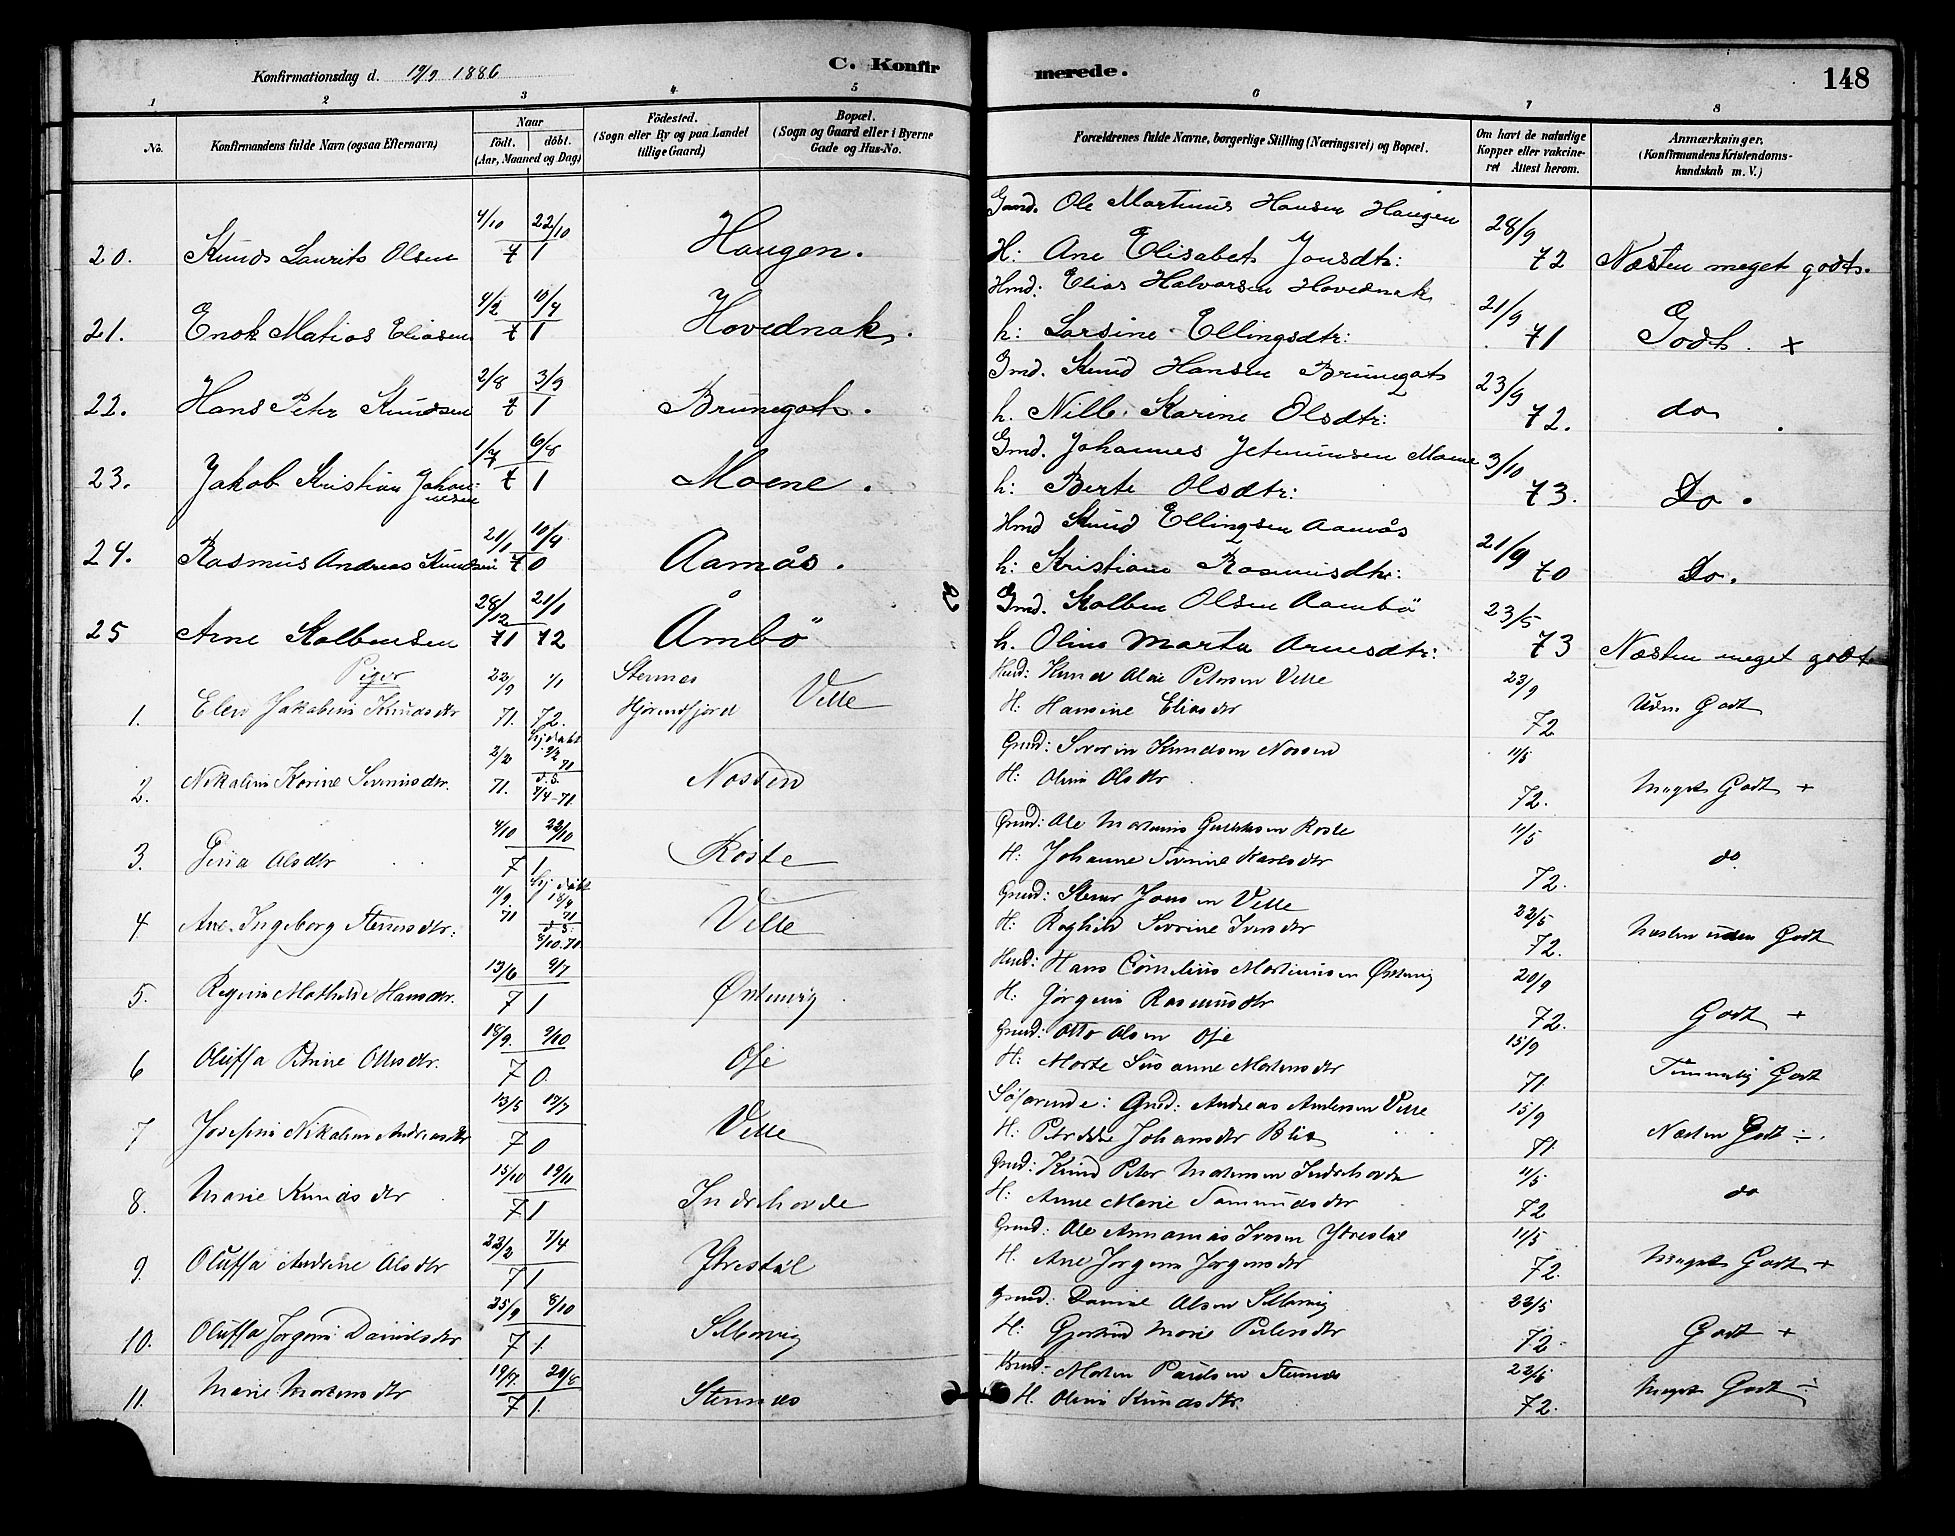 Konfirmationsdag d. 19/9 1886
C. Konfirmerede.
148
1 2 3 4 5 6 7 8
No.
Konfirmandens fulde Navn (ogsaa Efternavn)
Naar
födt. döbt.
(Aar, Maaned og Dag)
Födested.
(Sogn eller By og paa Landet
tillige Gaard)
Bopæl.
(Sogn og Gaard eller i Byerne
Gade og Hus-No.
Forældrenes fulde Navne, borgerlige Stilling (Næringsvei) og Bopæl.
Om havt de naturlige
Kopper eller vakcine-
ret Attest herom.
Anmærkninger.
(Konfirmandens Kristendoms-
kundskab m. V.)
4/10 22/10 Gmd. Ole Martinus Hansen Haugen 28/9
20. Knud Laurits Olsen 7 1 Haugen. H: Ane Elisabet Jonsdtr: 72 Næsten meget godt.
4/2 10/4 Hmd: Elias Halvorsen Hovednak 21/9
21. Enok Matias Eliasen 7 1 Hovednak. h: Larsine Ellingsdtr: 71 Godt. x
2/8 3/9 Gmd. Knud Hansen Brunegot 23/9
22. Hans Petr Knudsen 7 1 Brunegot. h. Nille Karine Olsdtr: 72. do
1/7 6/8 Gmd. Johannes Jetmundsen Moene 3/10
23. Jakob Kristian Johan- 7 1 Moene. h: Berte Olsdtr: 73. Do.
nesen
21/1 10/4 Hmd Knud Ellingsen Aamås 21/9
24. Rasmus Andreas Knudsen 7 0 Aamås. h: Kristiane Rasmusdtr: 70 Do.
28/12 21/1 Gmd. Kolben Olsen Aambö 23/5
25 Arne Kolbensen 71 72 Åmbö h. Oline Marta Arnesdtr: 73 Næsten meget godt
Piger 22/9 1/1 Stennes Husd: Knud Peterson Velle 23/9
1. Elen Jakobine Knudsdtr 71. 72. Hjörundfjord Velle H: Hansine Eliasdtr 72 Uden Godt
2/2 hj. döbt 71 Gmd: Severin Knudsen Nossen 11/5
2. Nikoline Karine Severinsdtr. 71. 71. Nossen H: Oline Olsdtr 72. Meget Godt +
4/10 22/10 Gmd: Ole Martinus Roste 11/5
3. Olsdtr 7 1 Roste H: Johanne Severine 72. do
11/9 hj. döbt 71 Gmd: Steiner Jonsen Velle 22/5
4 Ane Ingeborg 71 8/10.71 Velle H: Severine Iversdtr 72. Næsten uden Godt
13/6 9/7 Husd: Hans Cornelius Martinusen Østenvig 20/9
5. Regine Mathilde Hansdtr. 7 1 Østenvig H: Jörgine Rasmusdtr 72. Godt +
18/9. 9/10 Gmd: Otto Olsen Ose 15/9
6 Oluffa Petrine Ottosdtr. 7 0. Ose H: Marte Susanne Mortensdtr 71. Temmelig Godt
13/5 17/7 Söfarende: Gmd: Andreas Andersen Velle 15/9
7 Josefine Nikoline Andreasdtr 7 0 Velle H: Johansdtr Blix 71. Næsten Godt ÷.
15/10 19/11 Gmd: Knud Peter Mortensen Indrehovde 11/5
8. Marie Knudsdtr 7 1 Indrehovde H: Anne Marie Samundsdtr 72 do
22/2 7/4 Gmd: Ole Annanias Iversen Ytrestöl 11/5
9. Oluffa Andrine Olsdtr 7 1. Ytrestöl H. Ane Jörgine Jörgensdtr 72. Meget Godt +
25/9 8/10 Gmd: Daniel Olsen Sebervig 23/5
10. Oluffa Jörgine Danielsdtr 7 1. Sebervig H: Gjertrud Marie Pedersdtr 72. Godt +
19/7. 20/8 Morten Paulsen Stennes 22/5
11. Marie Mortensdtr 7 1. Stennes H. Oline Knudsdtr. 72. Meget Godt ÷